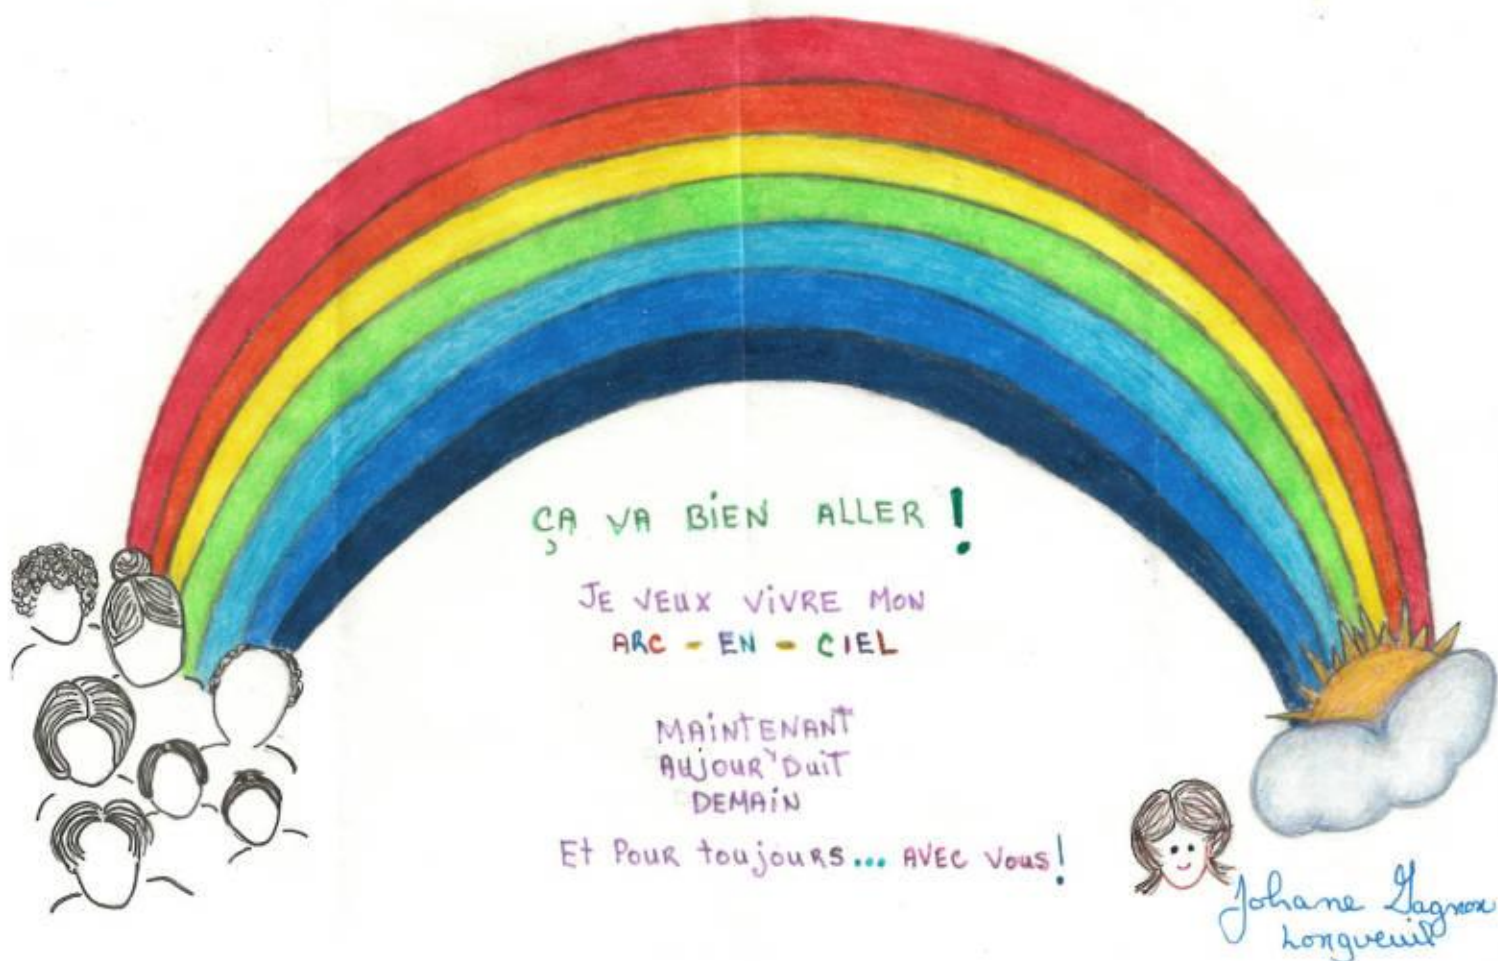 ÇA VA BIEN ALLER !
JE VEUX VIVRE MON
ARC - EN - CIEL
MAINTENANT
AUJOUR'DUIT
DEMAIN
Et POUR toujours... AVEC Vous!
Johane Gagnon
Longueuil